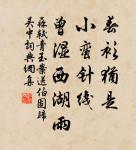 春衫猶是
小蠻針線
曾濕西湖雨
蘇軾青玉案送伯固歸
吳中詞興網集